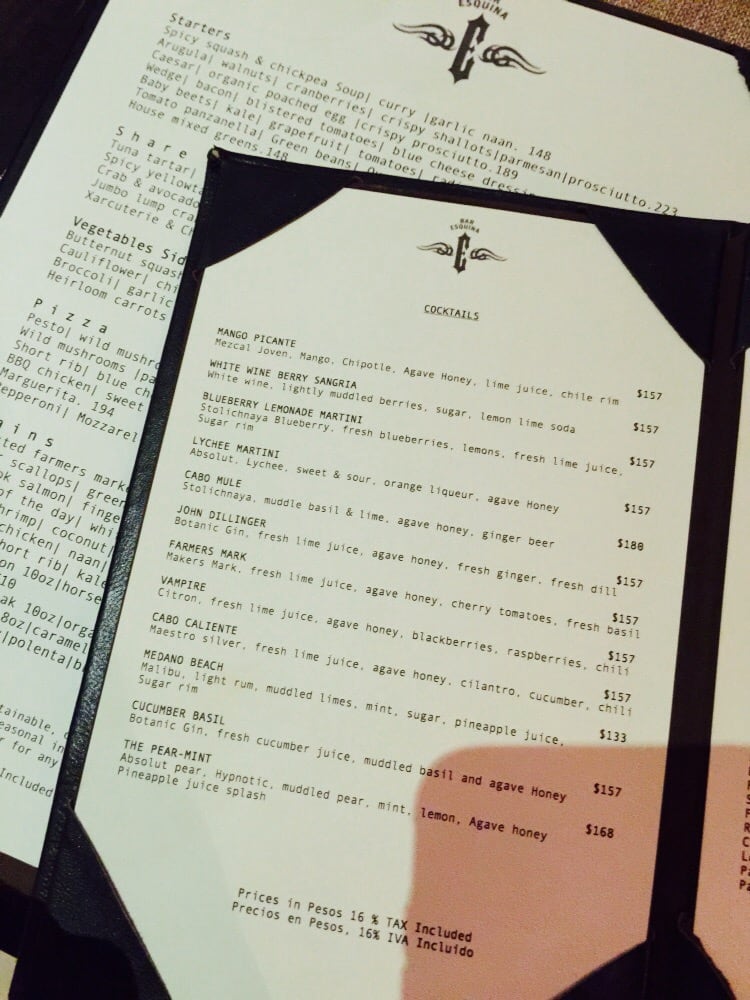 BAR
ESQUINA
Starters
Spicy squash & chickpea Soup| curry |garlic naan. 148
Arugula| walnuts| cranberries| crispy shallots|parmesan|prosciutto.223
Caesar| organic poached egg |crispy prosciutto.189
Wedge| bacon| blistered tomatoes| blue cheese
Baby beets| kale| grapefruit| tomatoes|
Tomato panzanella| Green beans|
House mixed greens.148
Share
Tuna tartar|
Spicy
Crab & avocado
Jumbo lump
Xarcuterie &
Vegetables
Butternut squash
Cauliflower|
Broccoli| garlic
Heirloom carrots
Pizza
Pesto| wild
Wild mushrooms
Short rib| blue
BBQ chicken| sweet
Marguerita. 194
BAR
ESQUINA
COCKTAILS
MANGO PICANTE $157
Mezcal Joven, Mango, Chipotle, Agave Honey, lime juice, chile rim
WHITE WINE BERRY SANGRIA $157
White wine, lightly muddled berries, sugar, lemon lime soda
BLUEBERRY LEMONADE MARTINI $157
Stolichnaya Blueberry, fresh blueberries, lemons, fresh lime juice,
Sugar rim
LYCHEE MARTINI $157
Absolut, Lychee, sweet & sour, orange liqueur, agave Honey
CABO MULE $180
Stolichnaya, muddle basil & lime, agave honey, ginger beer
JOHN DILLINGER $157
Botanic Gin, fresh lime juice, agave honey, fresh ginger, fresh dill
FARMERS MARK $157
Makers Mark, fresh lime juice, agave honey, cherry tomatoes, fresh basil
VAMPIRE $157
Citron, fresh lime juice, agave honey, blackberries, raspberries, chili
CABO CALIENTE $157
Maestro silver, fresh lime juice, agave honey, cilantro, cucumber, chili
MEDANO BEACH $133
Malibu, light rum, muddled limes, mint, sugar, pineapple juice,
Sugar rim
CUCUMBER BASIL $157
Botanic Gin, fresh cucumber juice, muddled basil and agave Honey
THE PEAR-MINT $168
Absolut pear, Hypnotic, muddled pear, mint, lemon, Agave honey
Pineapple juice splash
Prices in Pesos 16 % TAX Included
Precios en Pesos, 16% IVA Incluido